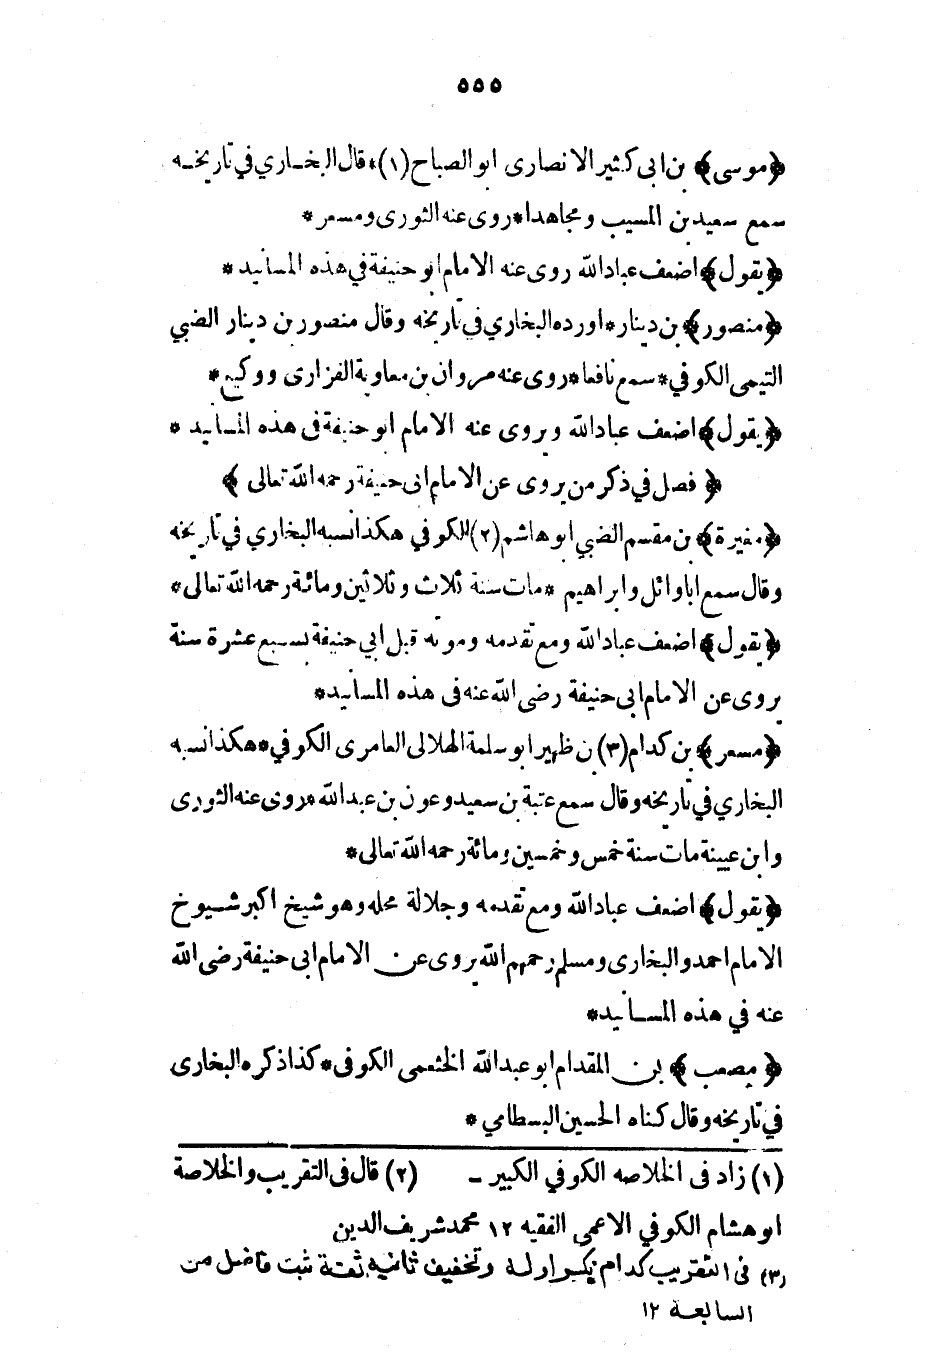 ٥٥٥
﴿موسى﴾ بن ابى كثير الانصارى ابو الصباح (١)* قال البخارى فى تاريخه
سمع سعيد بن المسيب ومجاهدا* روى عنه الثورى ومسعر*
﴿يقول﴾ اضعف عباد الله روى عنه الامام ابو حنيفة فى هذه المسانيد*
﴿منصور﴾ بن دينار* اورده البخارى فى تاريخه وقال منصور بن دينار الضبي
التيمى الكوفي* سمع نافعا* روى عنه مروان بن معاوية الفزارى ووكيع*
﴿يقول﴾ اضعف عباد الله ويروى عنه الامام ابو حنيفة فى هذه المسانيد*
﴿فصل في ذكر من يروى عن الامام ابى حنيفة رحمه الله تعالى﴾
﴿مغيرة﴾ بن مقسم الضبي ابو هاشم (٢) الكوفي هكذا نسبه البخاري في تاريخه
وقال سمع ابا وائل وابراهيم* مات سنة ثلاث وثلاثين ومائة رحمه الله تعالى*
﴿يقول﴾ اضعف عباد الله ومع تقدمه وموته قبل ابي حنيفة بسبع عشرة سنة
يروى عن الامام ابى حنيفة رضى الله عنه فى هذه المسانيد*
﴿مسعر﴾ بن كدام (٣) بن ظهير ابو سلمة الهلالى العامرى الكوفي* هكذا نسبه
البخاري في تاريخه وقال سمع عتبة بن سعيد وعون بن عبد الله* روى عنه الثورى
وابن عيينة مات سنة خمس وخمسين ومائة رحمه الله تعالى*
﴿يقول﴾ اضعف عباد الله ومع تقدمه وجلالة محله وهو شيخ اكبر شيوخ
الامام احمد والبخارى ومسلم رحمهم الله يروى عن الامام ابى حنيفة رضى الله
عنه في هذه المسانيد*
﴿مصعب﴾ بن المقدام ابو عبد الله الخثعمى الكوفى* كذا ذكره البخارى
في تاريخه وقال كناه الحسين البسطامي*
(١) زاد فى الخلاصه الكوفي الكبير ـ (٢) قال فى التقريب والخلاصة
ابو هشام الكوفي الاعمى الفقيه ١٢ محمد شريف الدين
(٣) فى التقريب كدام بكسر اوله وتخفيف ثانيه ثقة ثبت فاضل من
السابعة ١٢